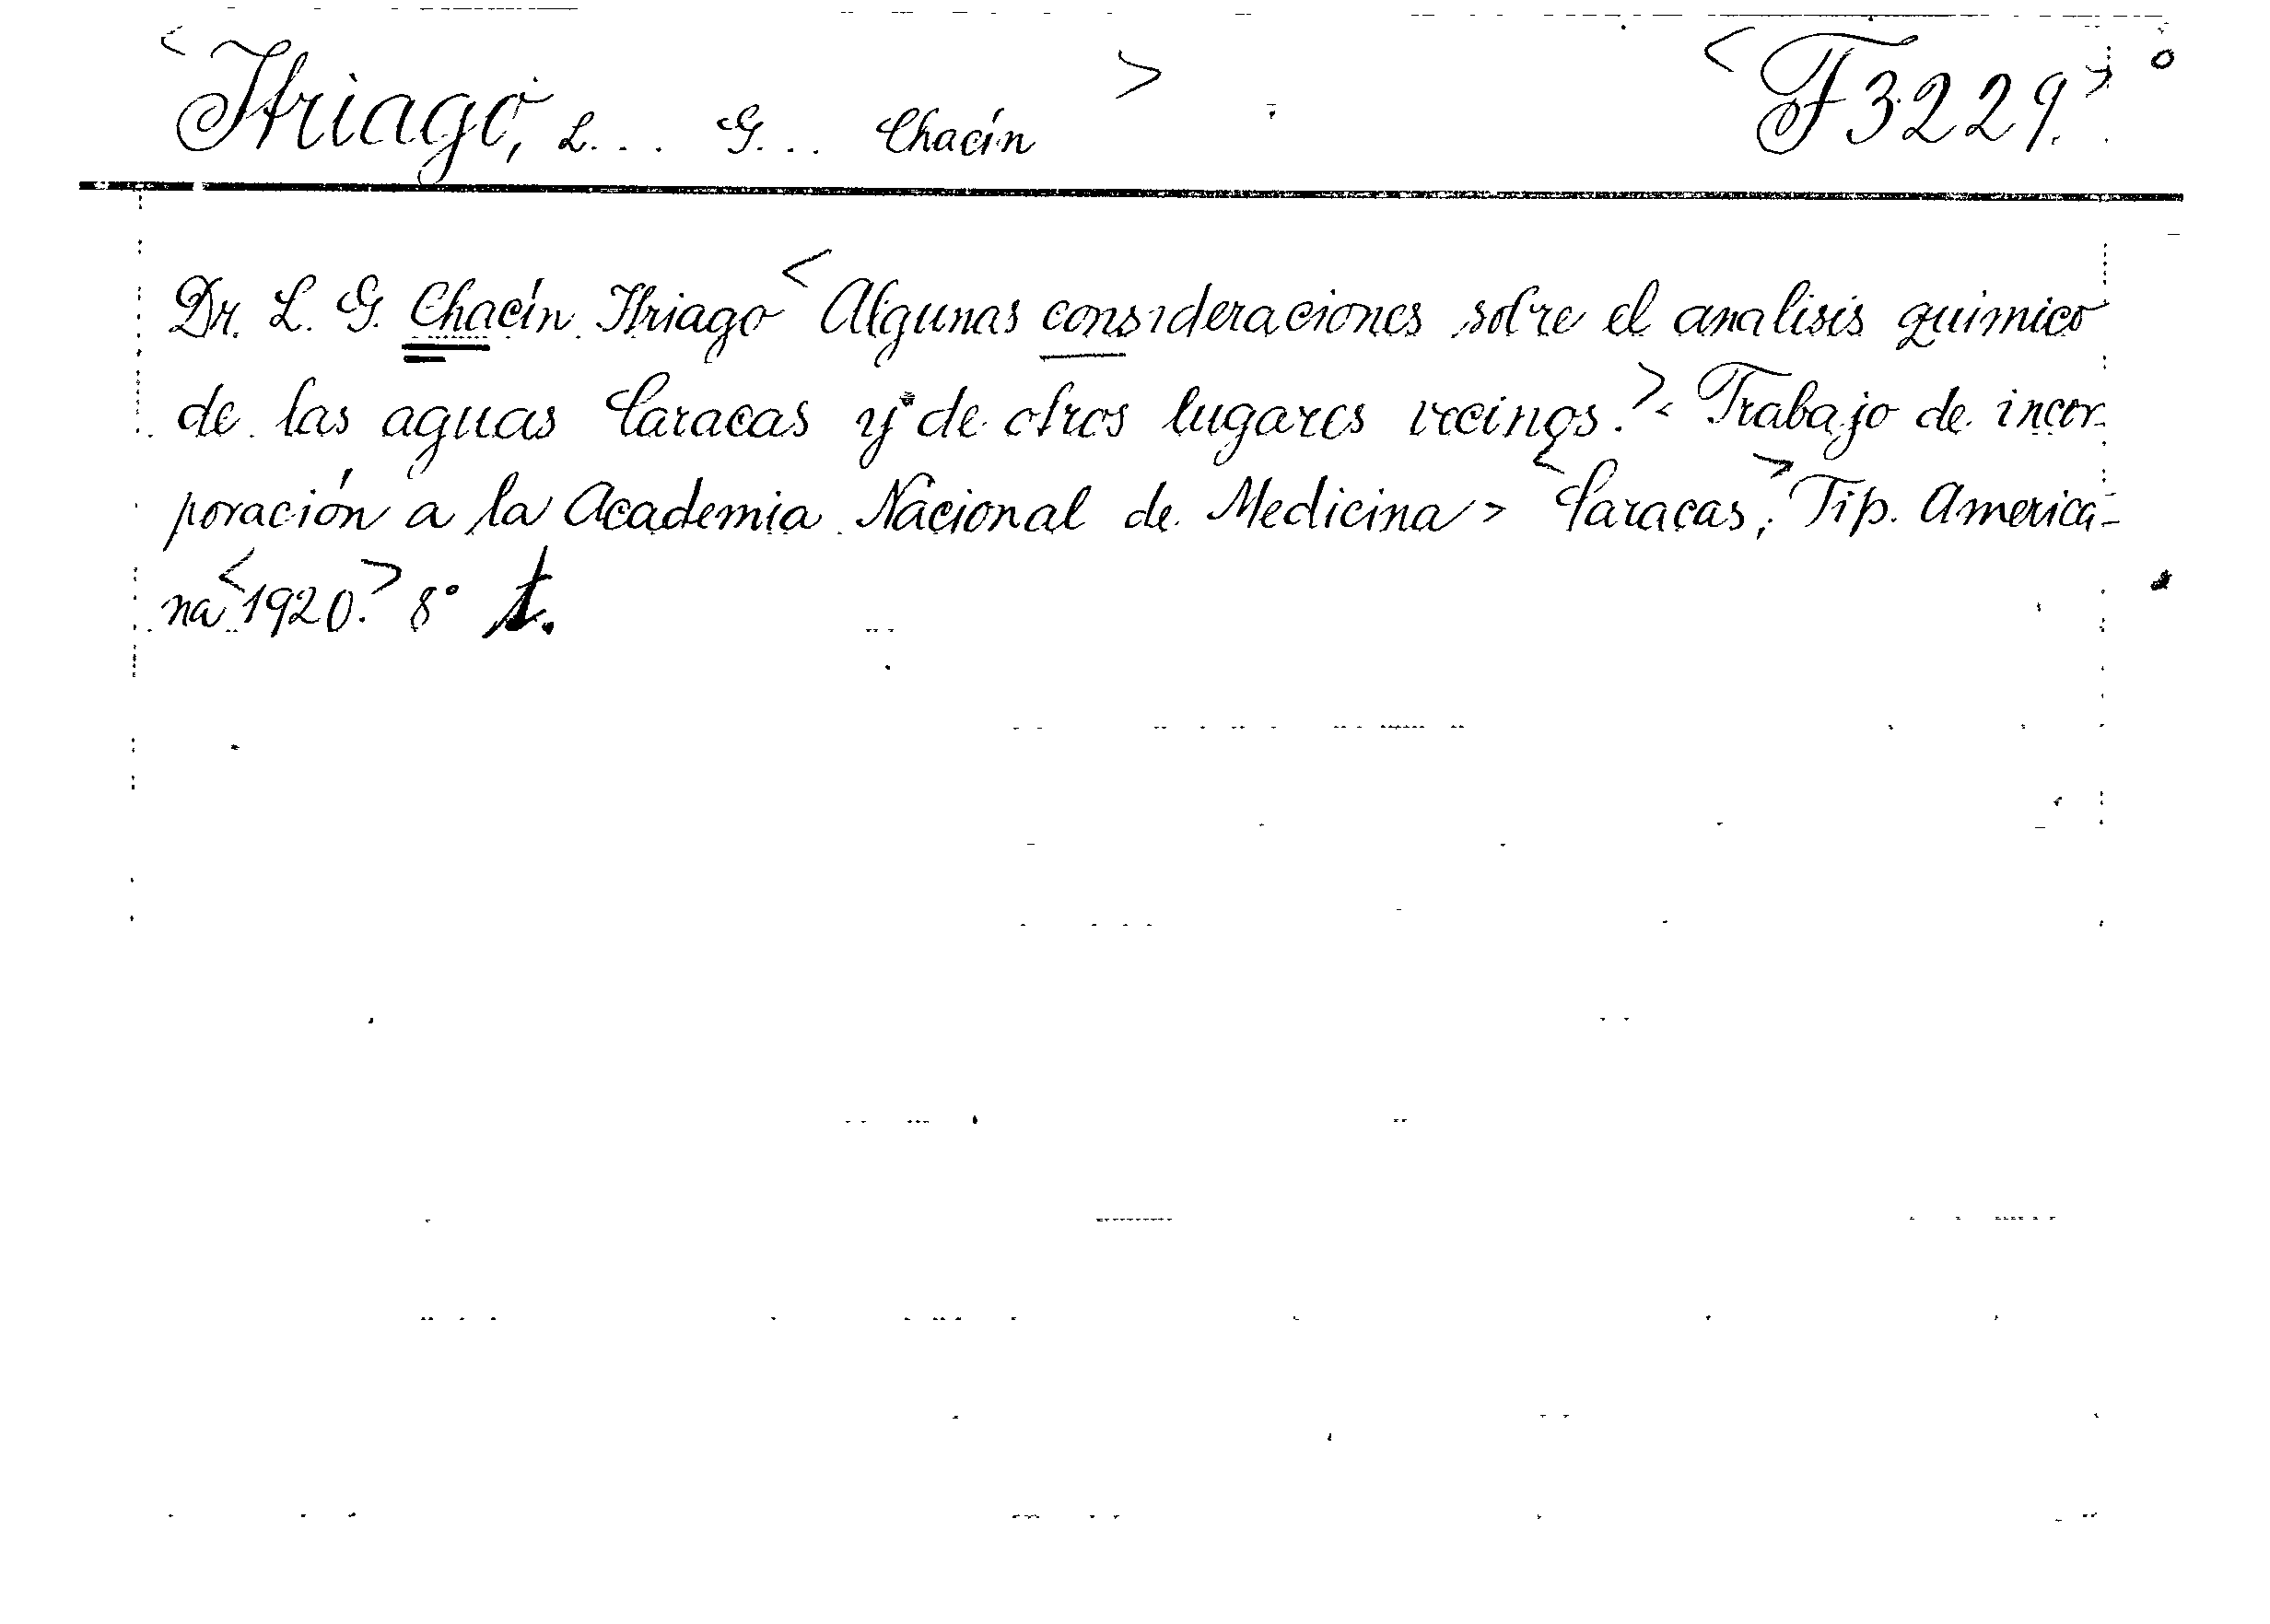 <Itriago, L... G... Chacín> <F 3229.> o
Dr. L. G. Chacín Itriago <Algunas consideraciones sobre el analisis quimico
de las aguas Caracas y de otros lugares vecinos.> <Trabajo de incor-
poración a la Academia Nacional de Medicina> <Caracas,> Tip. America-
na <1920.> 8°